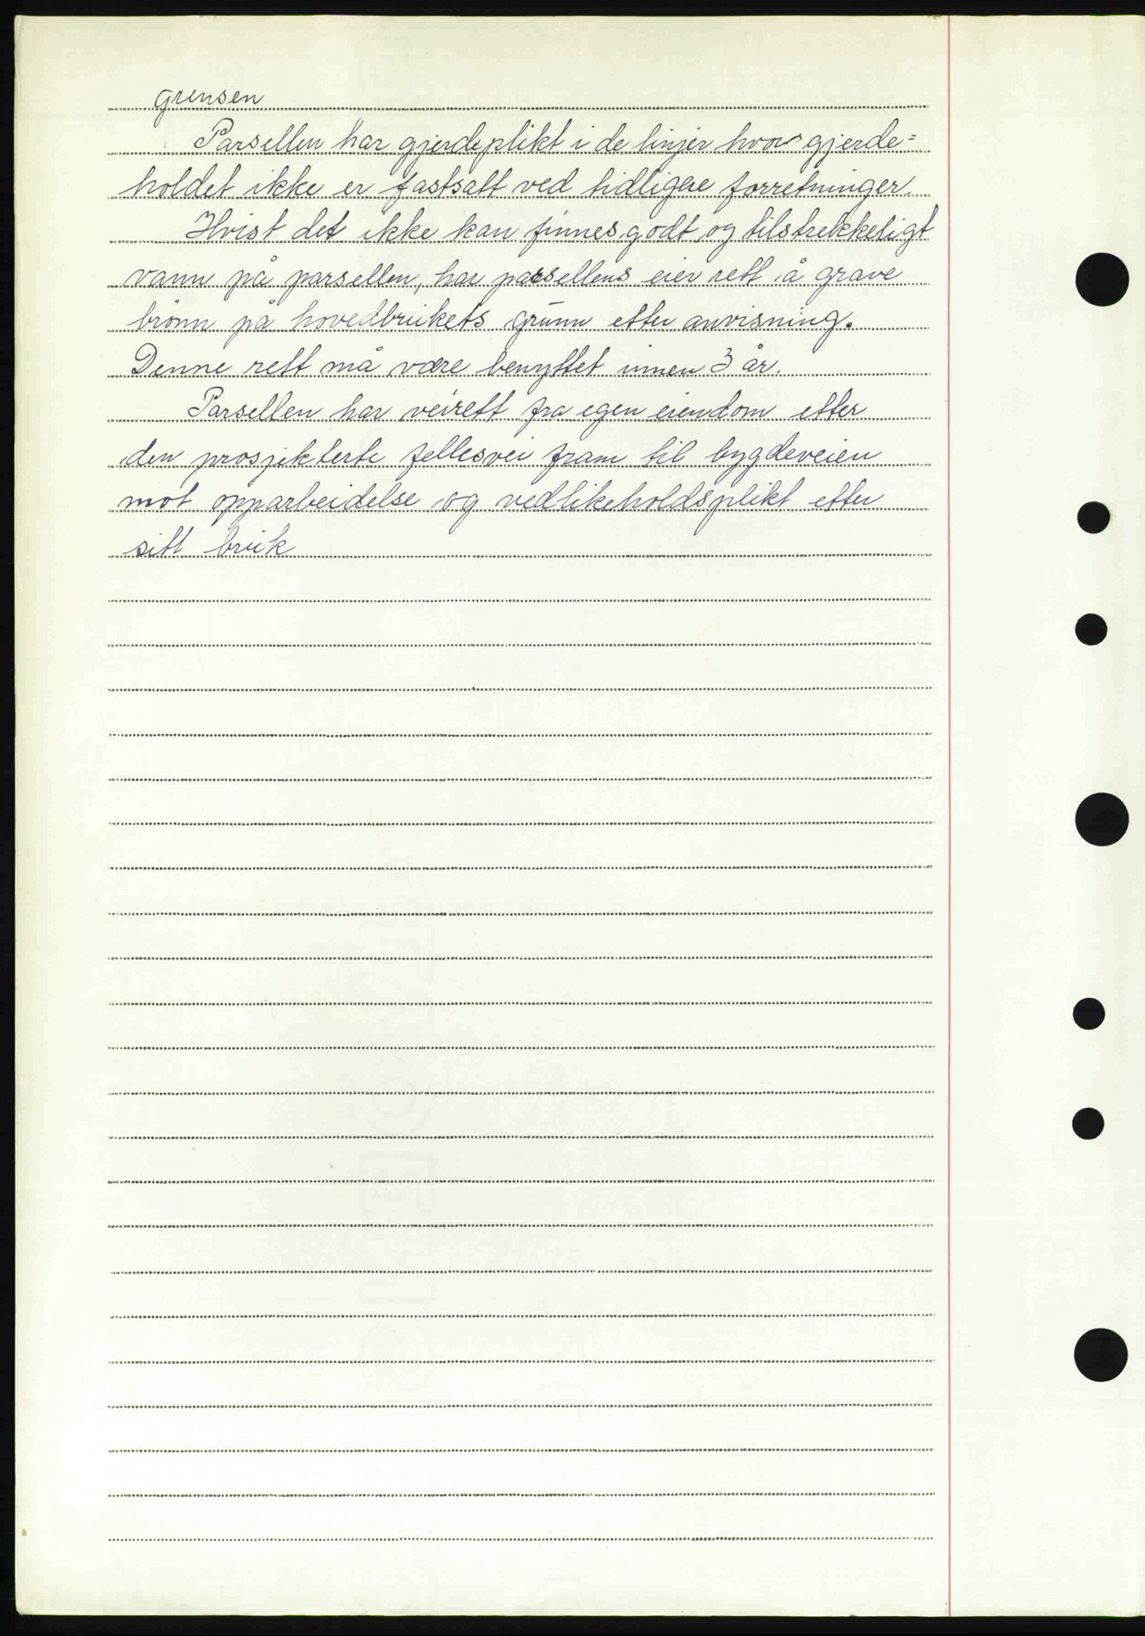 grensen
Parsellen har gjerdeplikt i de linjer hvor gjerde=
holdet ikke er fastsatt ved tidligere forretninger.
Hvist det ikke kan finnes godt og tilstrekkeligt
vann på parsellen, har parsellens eier rett å grave
brønn på hovedbrukets grunn etter anvisning.
Denne rett må være benyttet innen 3 år.
Parsellen har veirett fra egen eiendom etter
den prosjekterte fellesvei fram til bygdeveien
mot opparbeidelse og vedlikeholdsplikt etter
sitt bruk